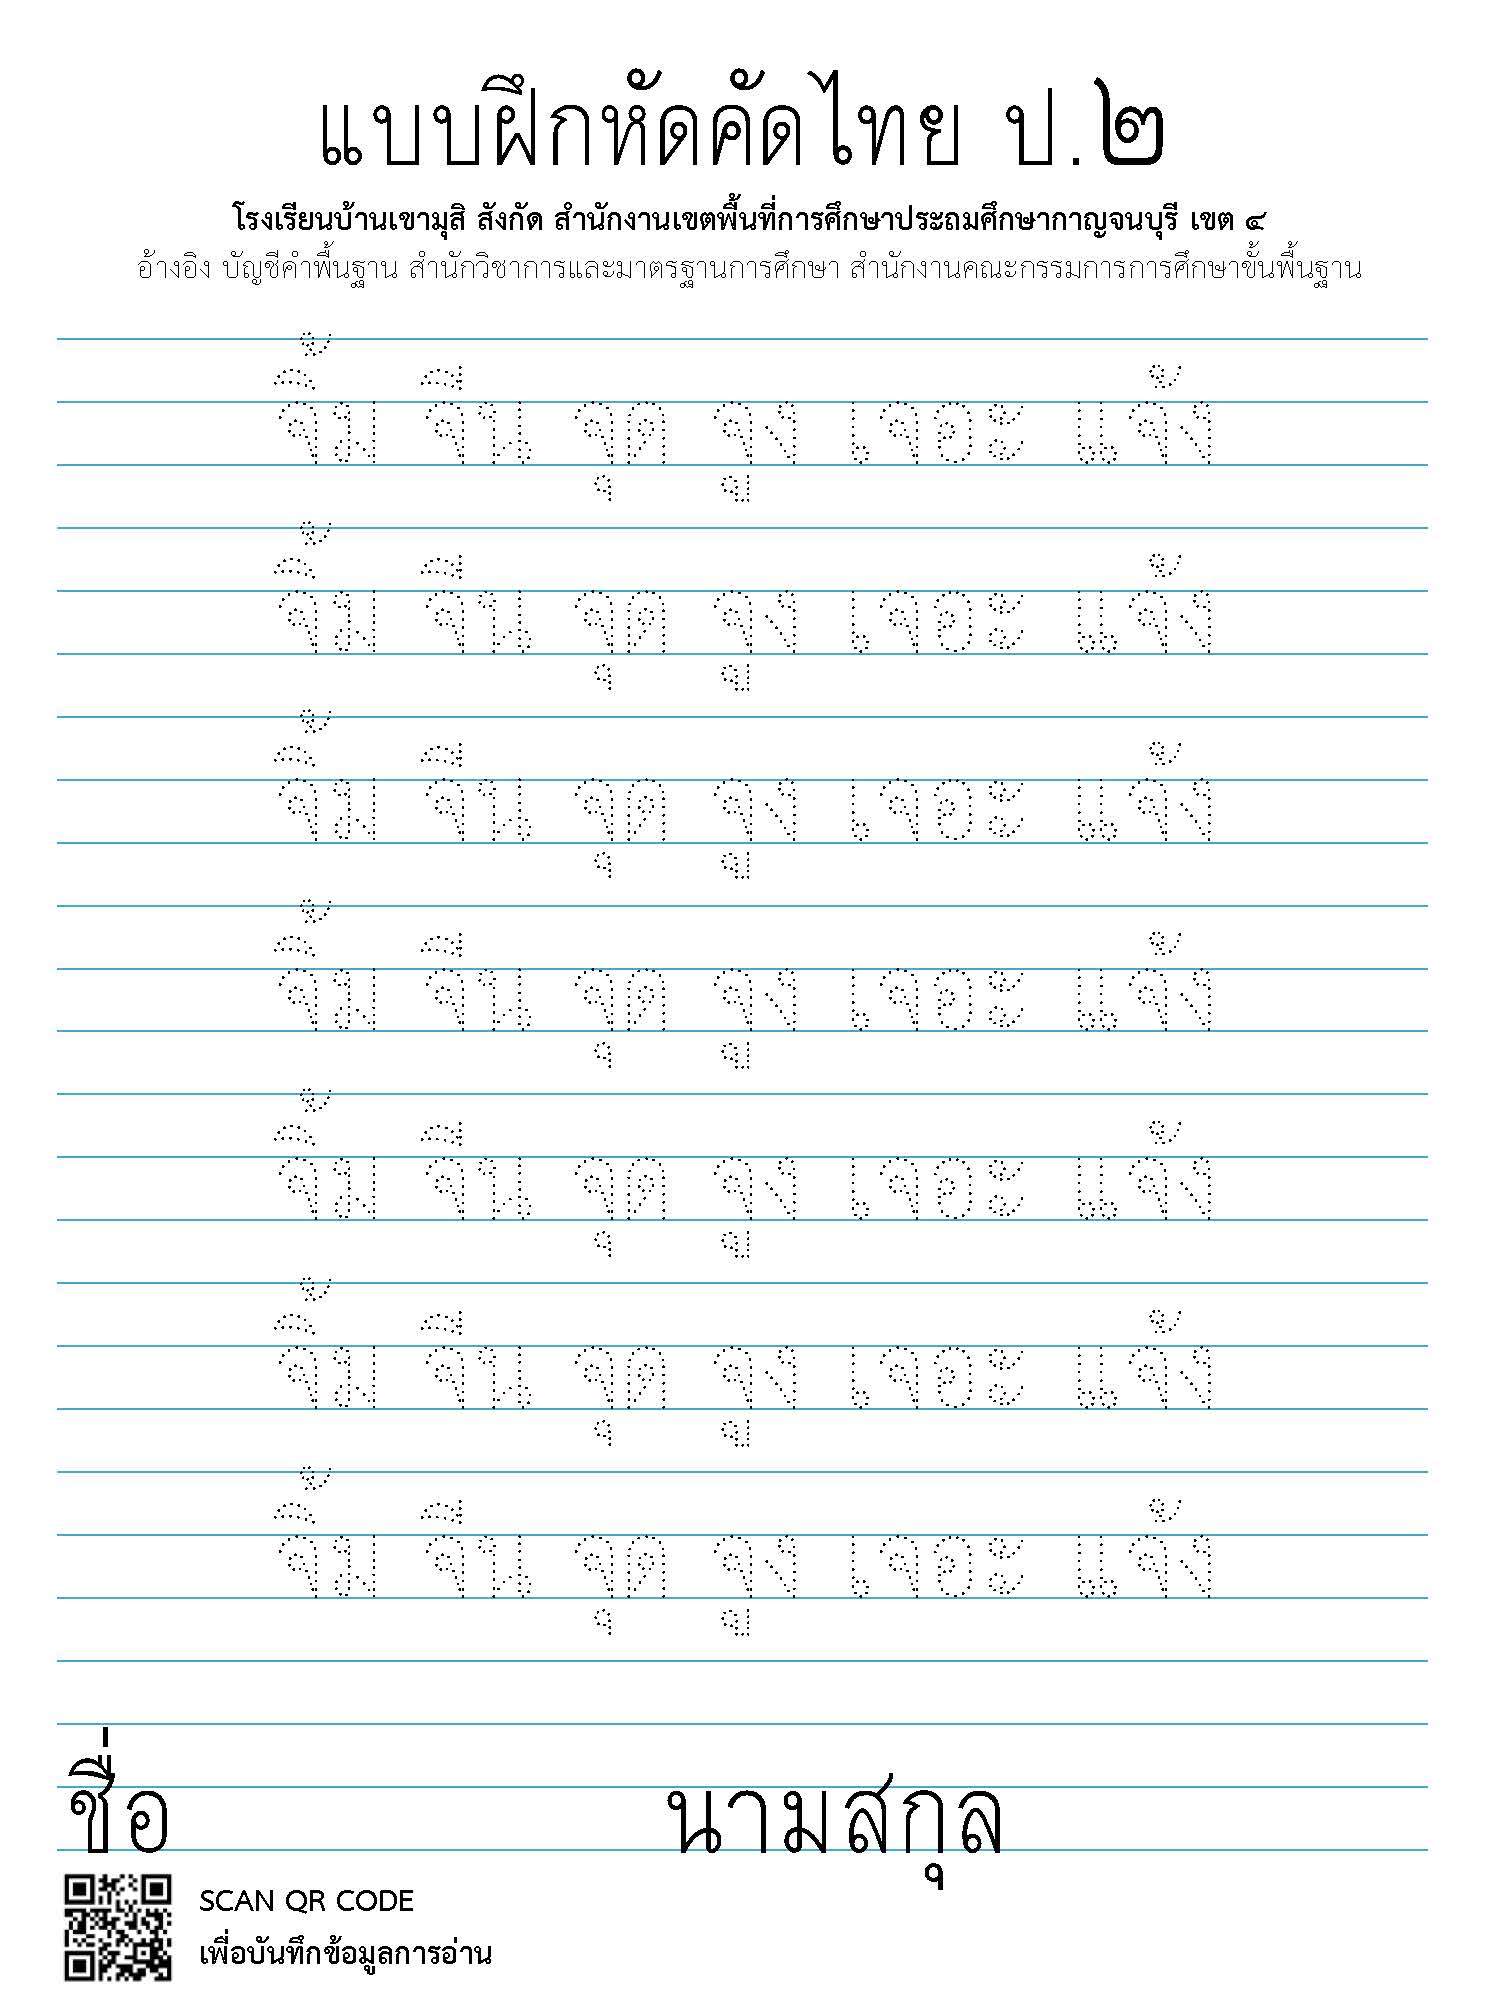 แบบฝึกหัดคัดไทย ป.๒
โรงเรียนบ้านเขามุสิ สังกัด สำนักงานเขตพื้นที่การศึกษาประถมศึกษากาญจนบุรี เขต ๔
อ้างอิง บัญชีคำพื้นฐาน สำนักวิชาการและมาตรฐานการศึกษา สำนักงานคณะกรรมการการศึกษาขั้นพื้นฐาน
จิ้ม จีน จุด จูง เจอะ แจ้ง
จิ้ม จีน จุด จูง เจอะ แจ้ง
จิ้ม จีน จุด จูง เจอะ แจ้ง
จิ้ม จีน จุด จูง เจอะ แจ้ง
จิ้ม จีน จุด จูง เจอะ แจ้ง
จิ้ม จีน จุด จูง เจอะ แจ้ง
จิ้ม จีน จุด จูง เจอะ แจ้ง
ชื่อ นามสกุล
SCAN QR CODE
เพื่อบันทึกข้อมูลการอ่าน